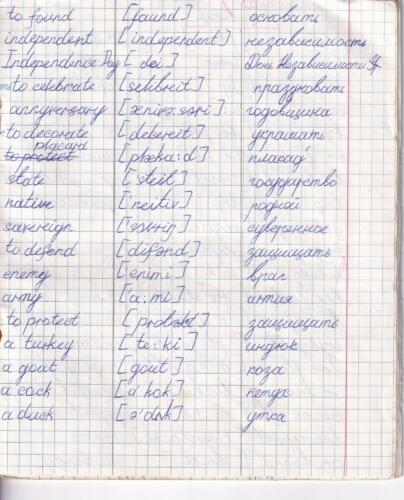 to found [faund] основать
independent [independent] независимость
Independence Day [dei] День Независимости
to celebrate [selibreit] праздновать
annyversary [ænivə:səri] годовщина
to decorate [dekereit] украшать
to protect placard [plæka:d] плакад
state ['steit] государство
native ['neitiv] родной
sovereign ['sɔvriŋ] суверенное
to defend [difənd] защищать
enemy ['enimi] враг
army ['a:mi] армия
to protect [prɔtəkt] защищать
a turkey [te:ki] индюк
a gout [gout] коза
a cock [ə'kok] петух
a duck [ə'dʌk] утка